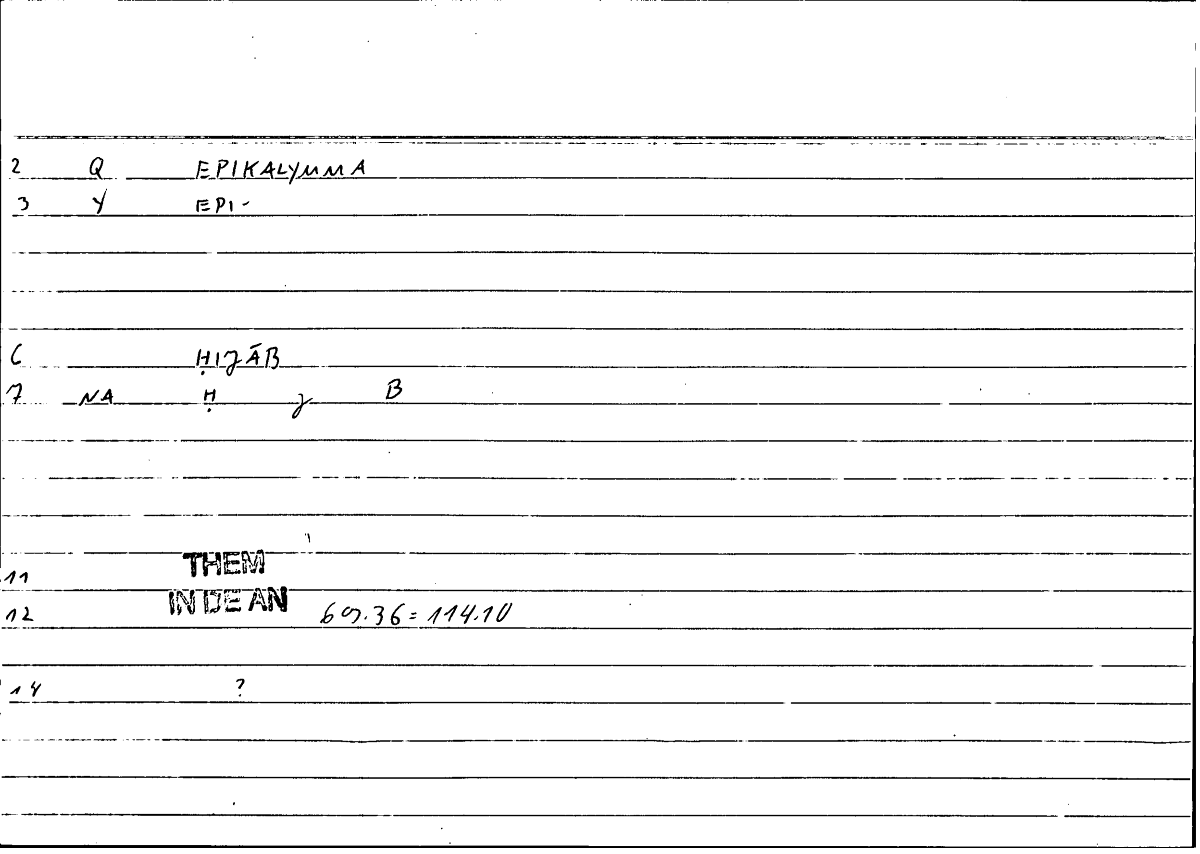 2 Q EPIKALYMMA
3 Y EPI-
6 ḤIJĀB
7 NA Ḥ J B
11 THEM
12 IN DE AN 69.36=114.10
14 ?